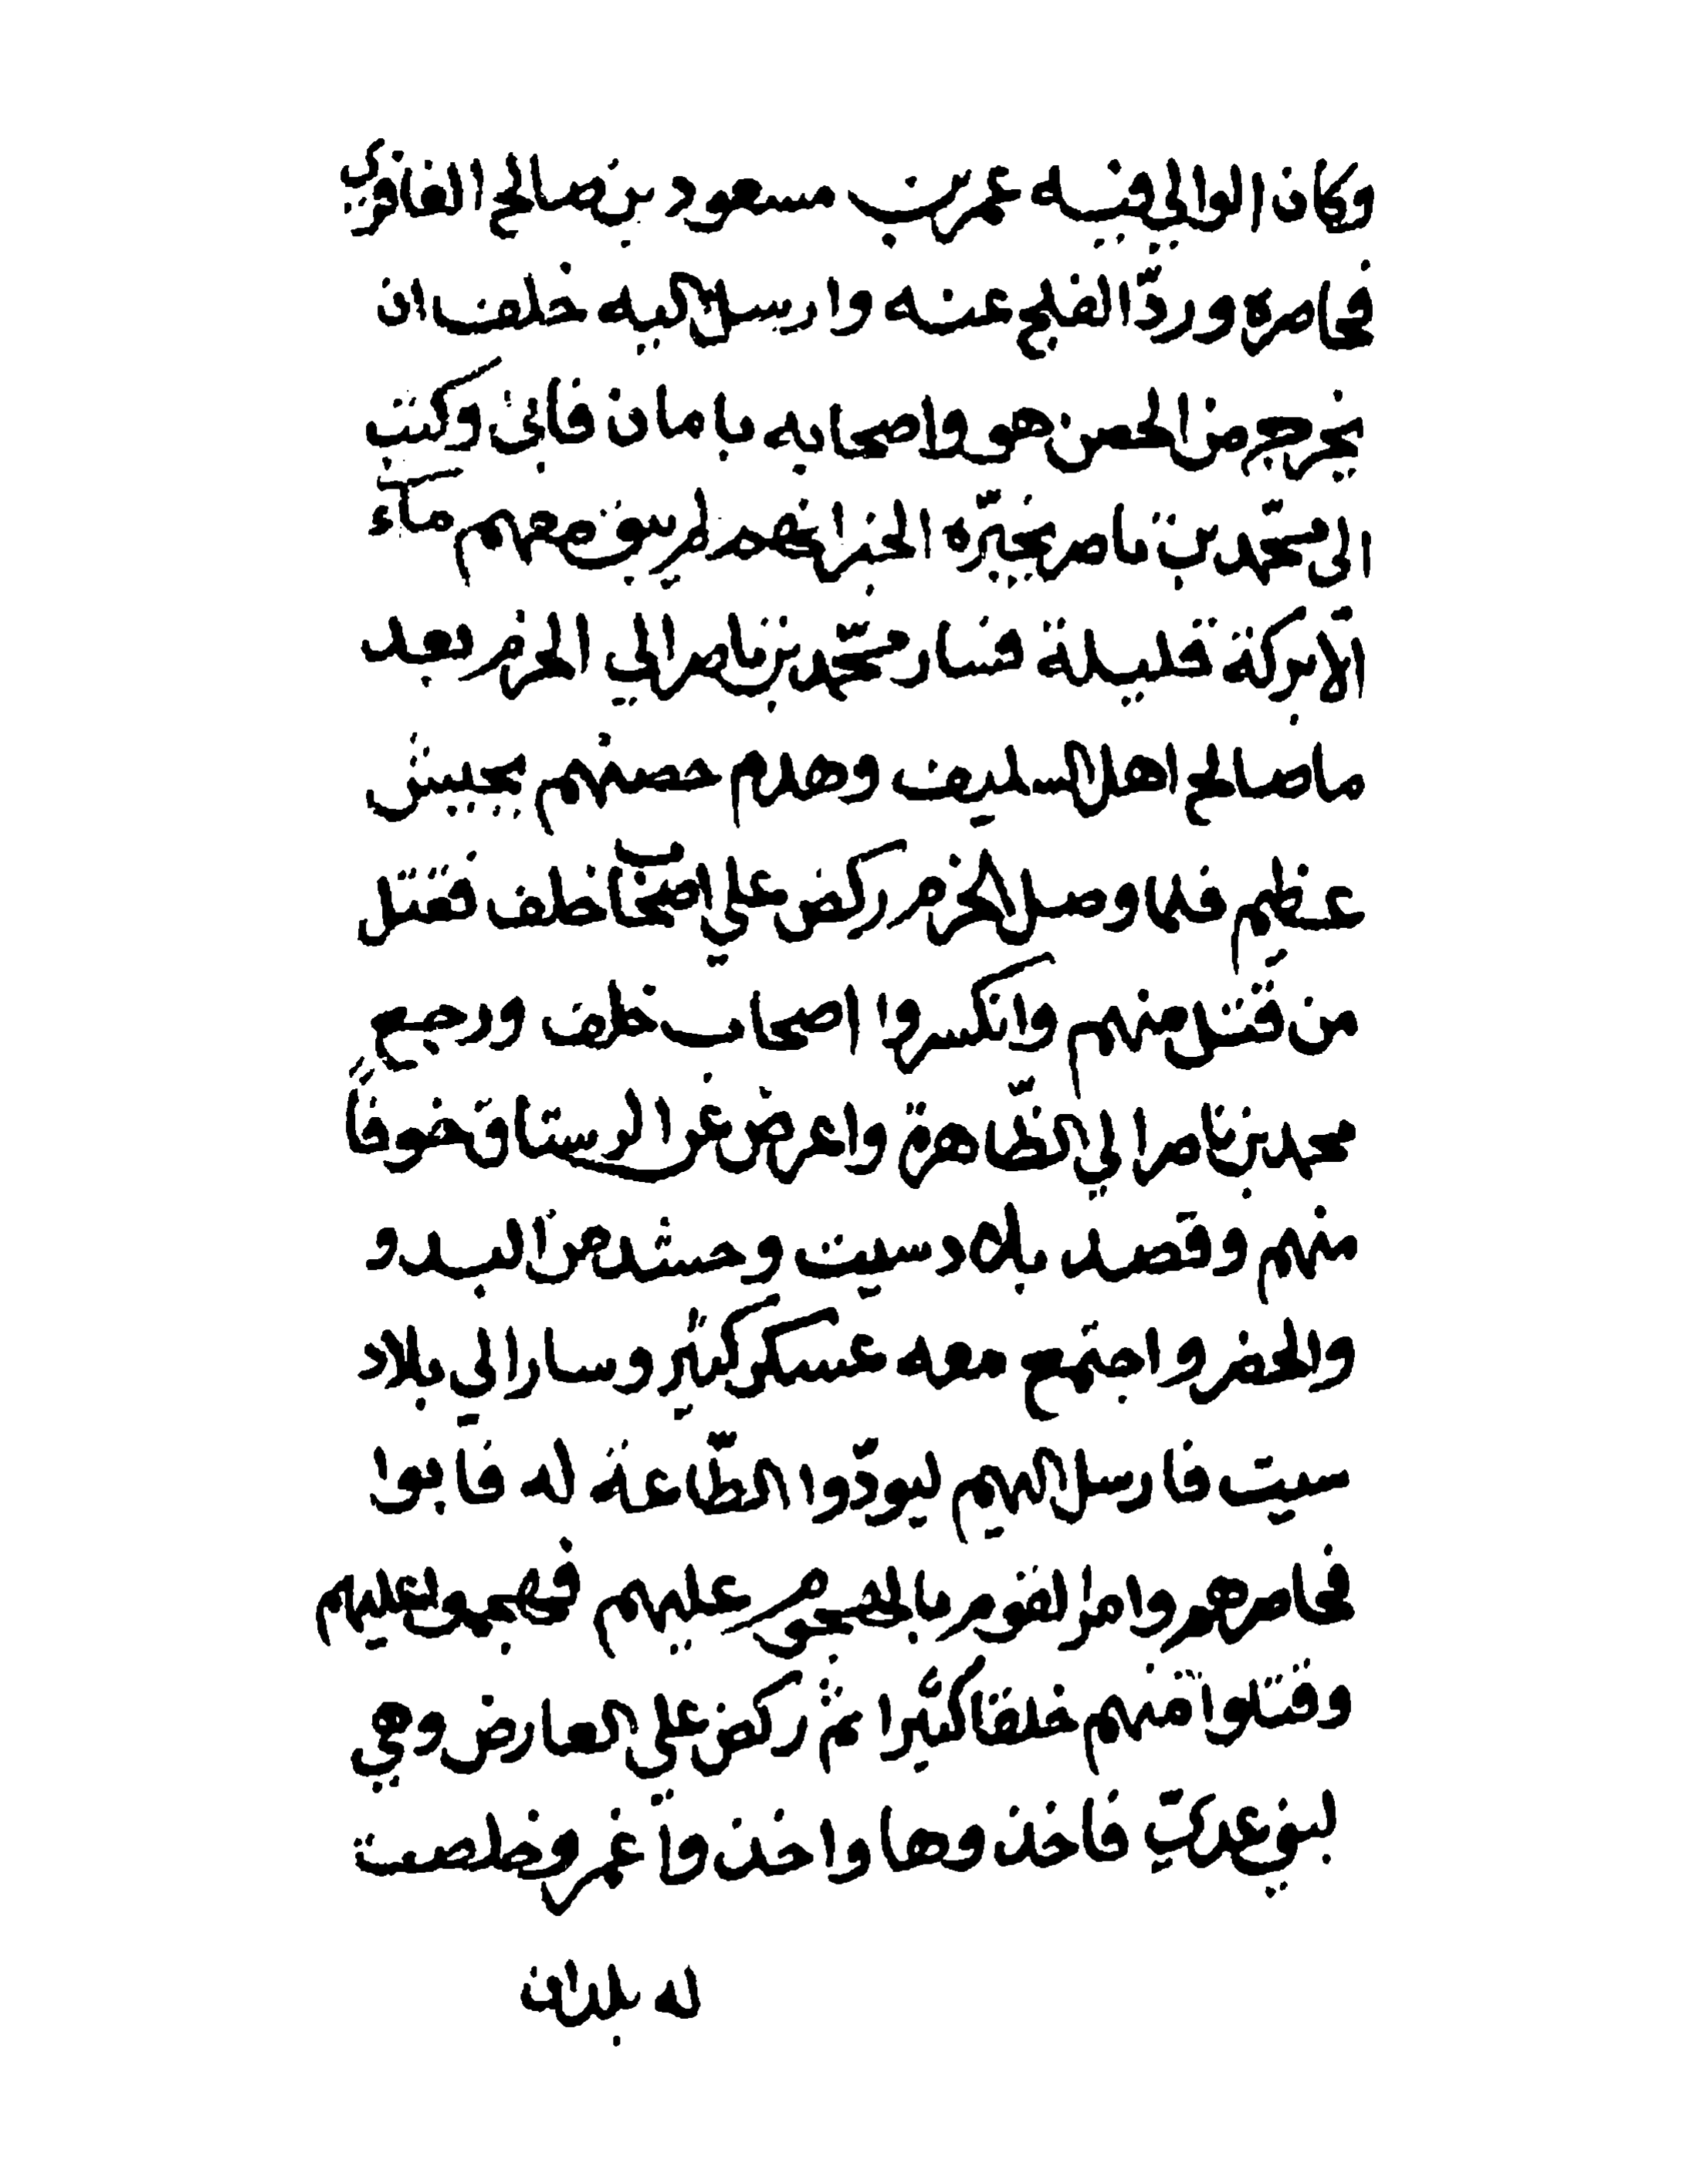 وكان الوالي فيه عمر بن مسعود بن صالح الغافري
فحاصره وردّ الفلج عنه وارسل اليه خلف ان
يخرج من الحصن هو واصحابه بامان فابى وكتب
الى محمّد بن ناصر يخبّره الخبر انهم لم يبق معهم مآء
الّا بركة قليلة فسار محمّد بن ناصر الي الحزم بعد
ما صالح اهل السليف وهدم حصنهم بجيش
عظيم فلما وصل الحزم ركض علي اصحاب خلف فقتل
من قُتل منهم وانكسروا اصحاب خلف ورجع
محمد بن ناصر الي الظّاهرة واعرض عن الرستاق خوفاً
منهم وقصد بلاد سيت وحشد من البدو
والحضر واجتمع معه عسكر كثير وسار الي بلاد
سيت فارسل اليهم ليودّوا الطّاعة له فابوا
فحاصرهم وامر القوم بالهجوم عليهم فهجموا عليهم
وقتلوا منهم خلقا كثيرا ثم ركض علي العارض وهي
لبني عدي فاخذوها واخذوا غمر وخلصت
له بلدان